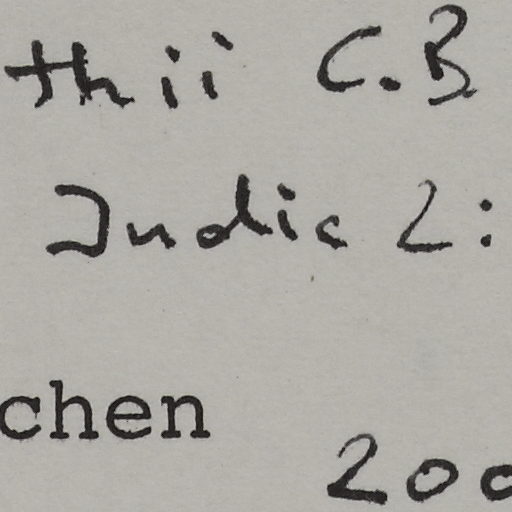 thii C.B
Indic 2:
chen
200